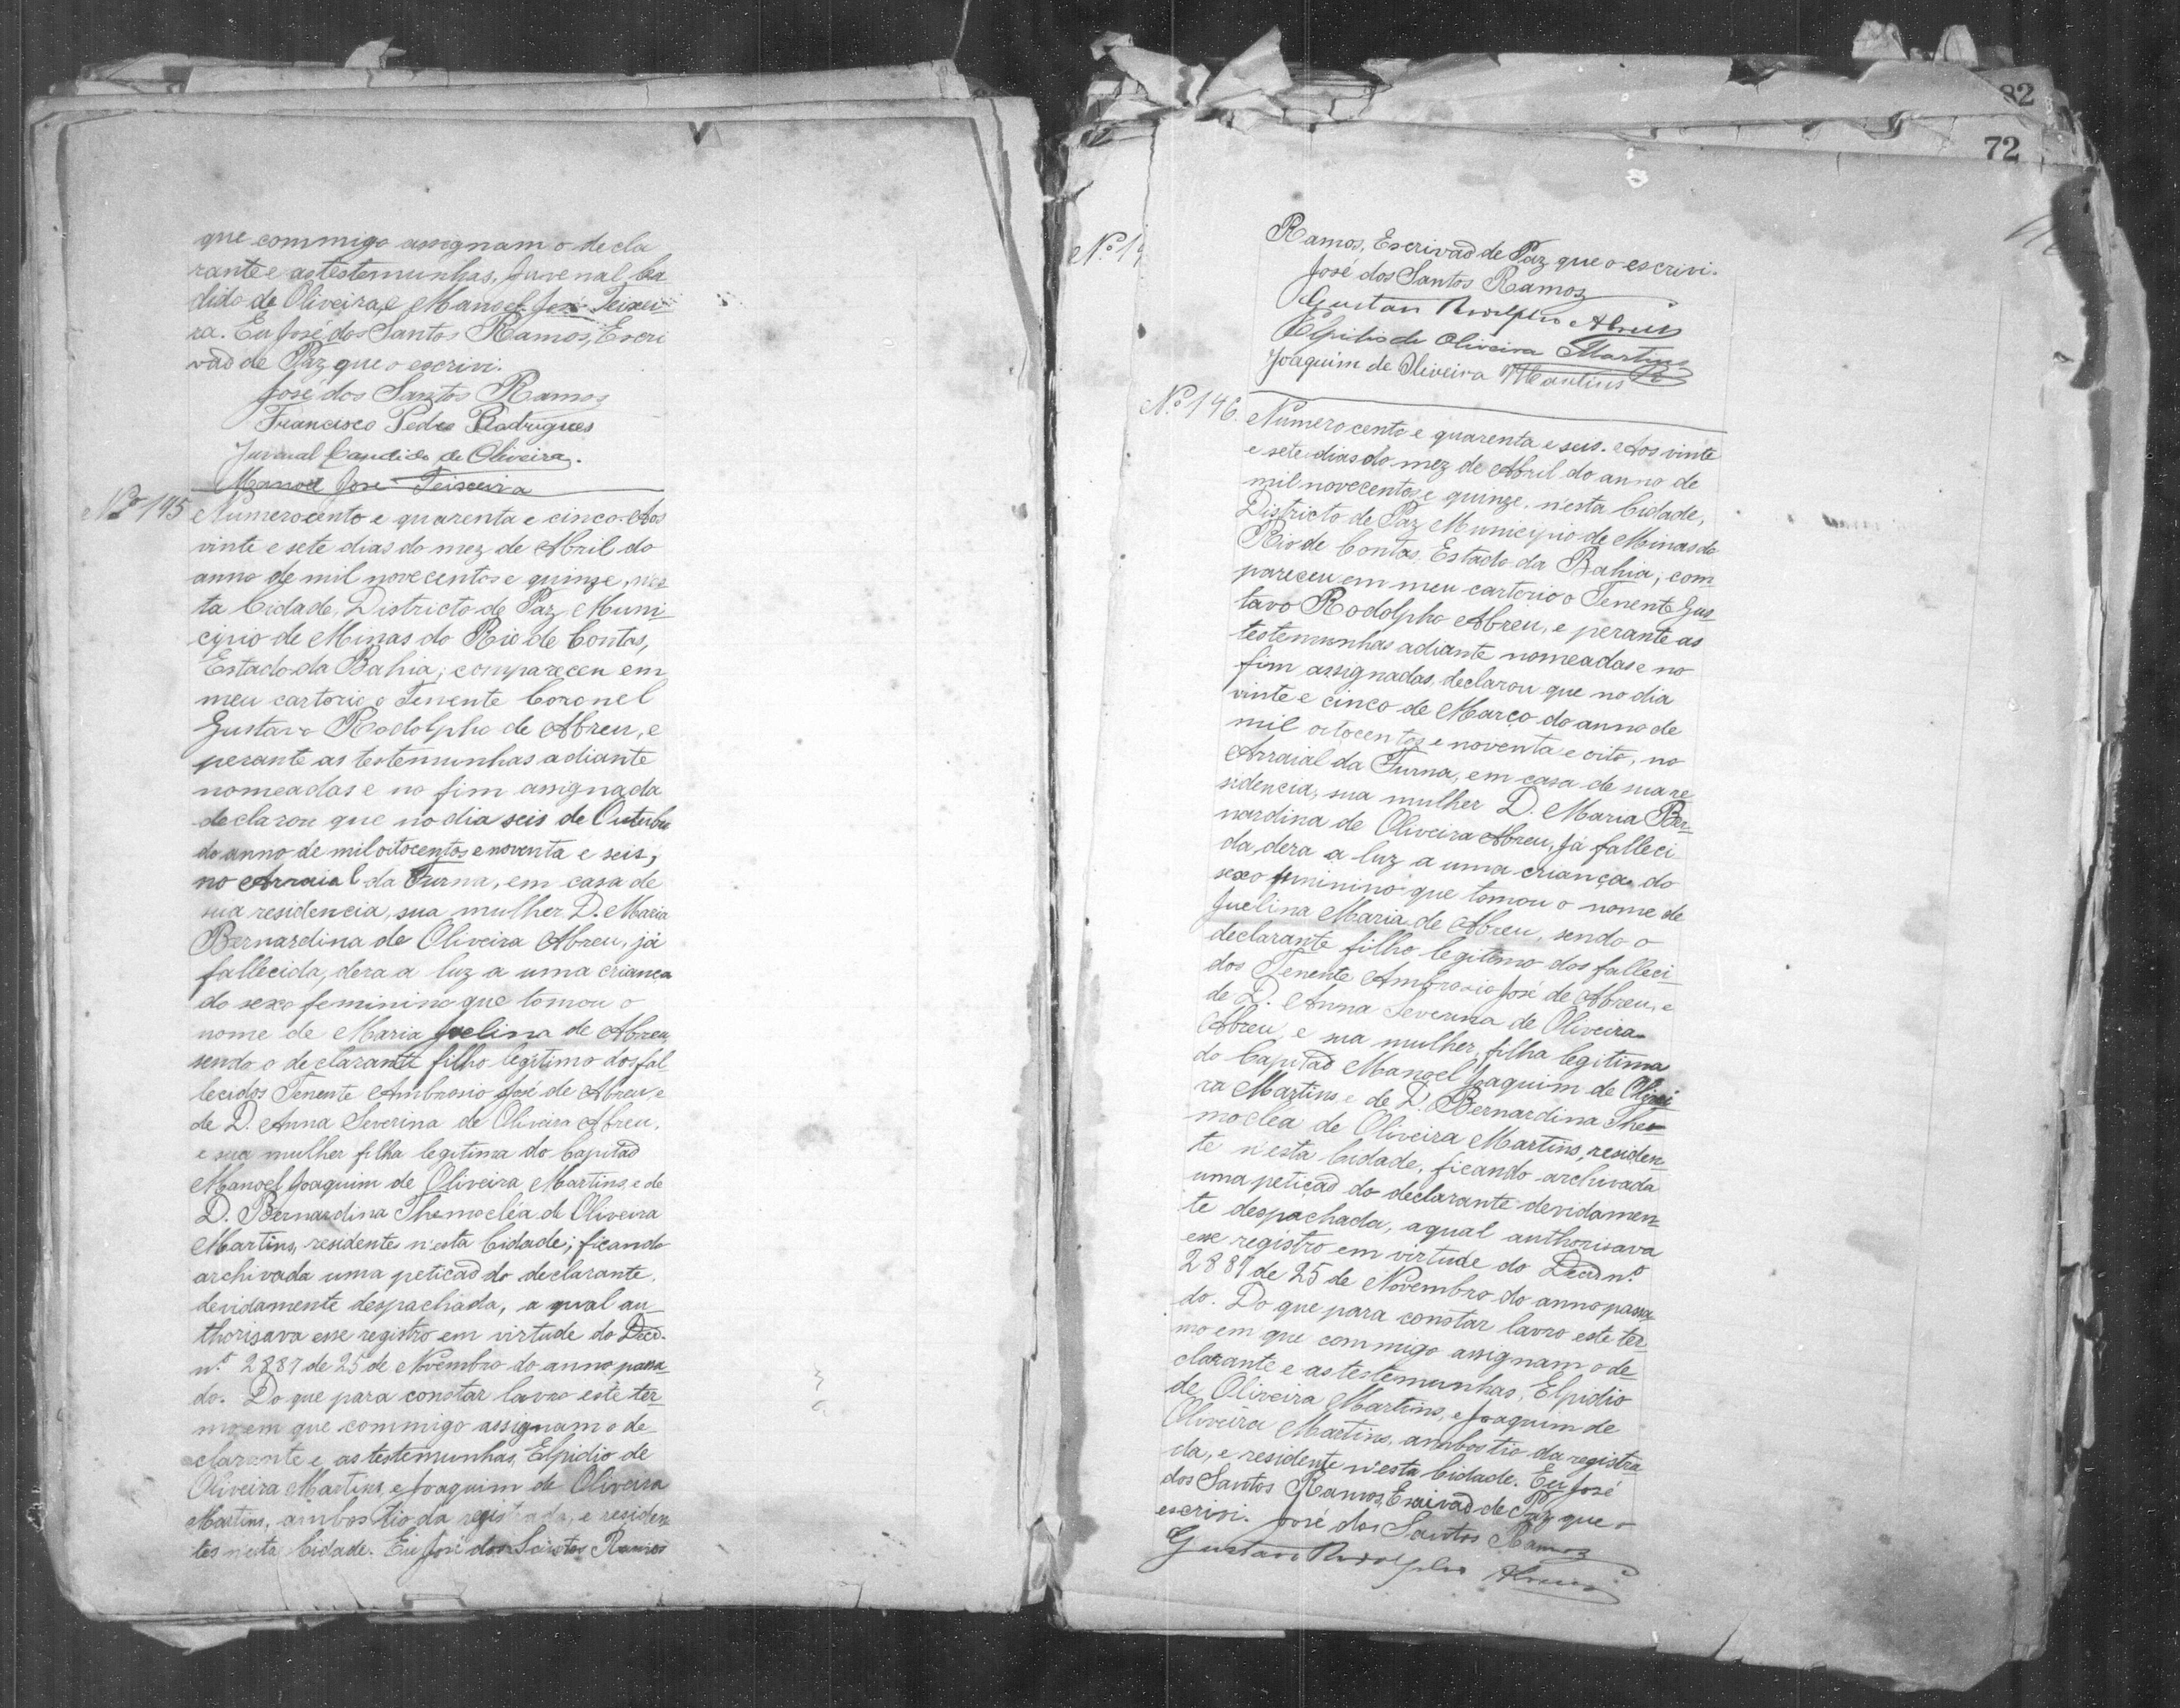 que commigo assignam o decla
rante e as testemunhas, Juvenal Can
dido de Oliveira, e Manoel José Teixei
ra. Eu José dos Santos Ramos, Escri
vaõ de Paz que o escrivi.
José dos Santos Ramos
Francisco Pedro Rodrigues
Juvenal Candido de Oliveira.
Manoel Jose Teixeira
Nº 145 Numero cento e quarenta e cinco. Aos
vinte e sete dias do mez de Abril do
anno de mil novecentos e quinze, nes
ta Cidade, Districto de Paz, Muni-
cipio de Minas do Rio de Contas,
Estado da Bahia; compareceu em
meu cartorio o Tenente Coronel
Gustavo Rodolpho de Abreu, e
perante as testemunhas adiante
nomeadas e no fim assignada
declarou que no dia seis de Outubro
do anno de mil oitocentos e noventa e seis,
no Arraial da Furna, em casa de
sua residencia, sua mulher D. Maria
Bernardina de Oliveira Abreu, já
fallecida, dera a luz a uma criança
do sexo feminino que tomou o
nome de Maria Juelina de Abreu
sendo o declarante filho legitimo dos fal
lecidos Tenente Ambrosio José de Abreu, e
de D. Anna Severina de Oliveira Abreu,
e sua mulher filha legitima do Capitaõ
Manoel Joaquim de Oliveira Martins, e de
D. Bernardina Themocléa de Oliveira
Martins, residente n'esta Cidade; ficando
archivada uma petiçaõ do declarante,
devidamente despachada, a qual au-
thorisava esse registro em virtude do Dec.
nº 2887 de 25 de Novembro do anno passa
do. Do que para constar lavro este ter-
mo em que commigo assignam o de-
clarante e as testemunhas, Elpidio de
Oliveira Martins, e Joaquim de Oliveira
Martins, ambos tio da registrada, e residen
tes n'esta Cidade. Eu José dos Santos Ramos
82
72
Nº 1
Ramos, Escrivaõ de Paz que o escrivi.
José dos Santos Ramos
Gustavo Rodolpho Abreu
Elpidio de Oliveira Martins
Joaquim de Oliveira Martins
Nº 146. Numero cento e quarenta e seis. Aos vinte
e sete dias do mez de Abril do anno de
mil novecentos e quinze, n'esta Cidade,
Districto de Paz, Municipio de Minas do
Rio de Contas, Estado da Bahia; com
pareceu em meu cartorio o Tenente Gus-
tavo Rodolpho Abreu, e perante as
testemunhas adiante nomeadas e no
fim assignadas, declarou que no dia
vinte e cinco de Março do anno de
mil oitocentos e noventa e oito, no
Arraial da Furna, em casa de sua re
sidencia, sua mulher D. Maria Ber-
nardina de Oliveira Abreu, já falleci
da, dera a luz a uma criança do
sexo feminino que tomou o nome de
Juelina Maria de Abreu, sendo o
declarante filho legitimo dos falleci-
dos Tenente Ambrosio José de Abreu, e
de D. Anna Severina de Oliveira
Abreu, e sua mulher, filha legitima
do Capitaõ Manoel Joaquim de Olivei
ra Martins, e de D. Bernardina The-
moclea de Oliveira Martins, residen
te n'esta Cidade, ficando archivada
uma petiçaõ do declarante devidamen
te despachada, a qual authorisava
esse registro em virtude do Dec. nº
2887 de 25 de Novembro do anno passa
do. Do que para constar lavro este ter
mo em que commigo assignam o de-
clarante e as testemunhas, Elpidio
de Oliveira Martins, e Joaquim de
Oliveira Martins, ambos tio da registra
da, e residente n'esta Cidade. Eu José
dos Santos Ramos, Escrivaõ de Paz que o
escrivi. José dos Santos Ramos
Gustavo Rodolpho Abreu